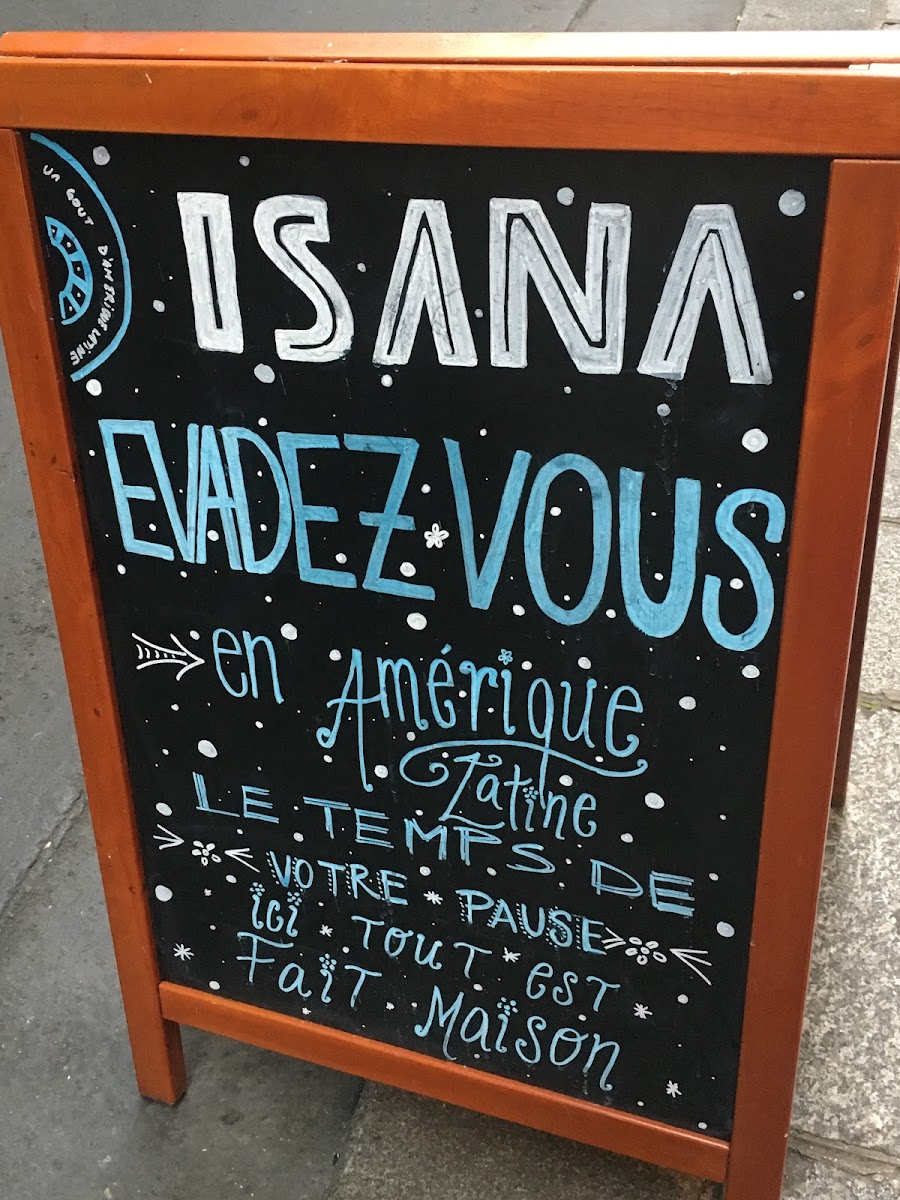 UN GOUT D'AMERIQUE LATINE
ISANA
EVADEZ VOUS
en Amérique
Latine
LE TEMPS DE
VOTRE PAUSE
ici TOUT EST
FaiT MaiSon